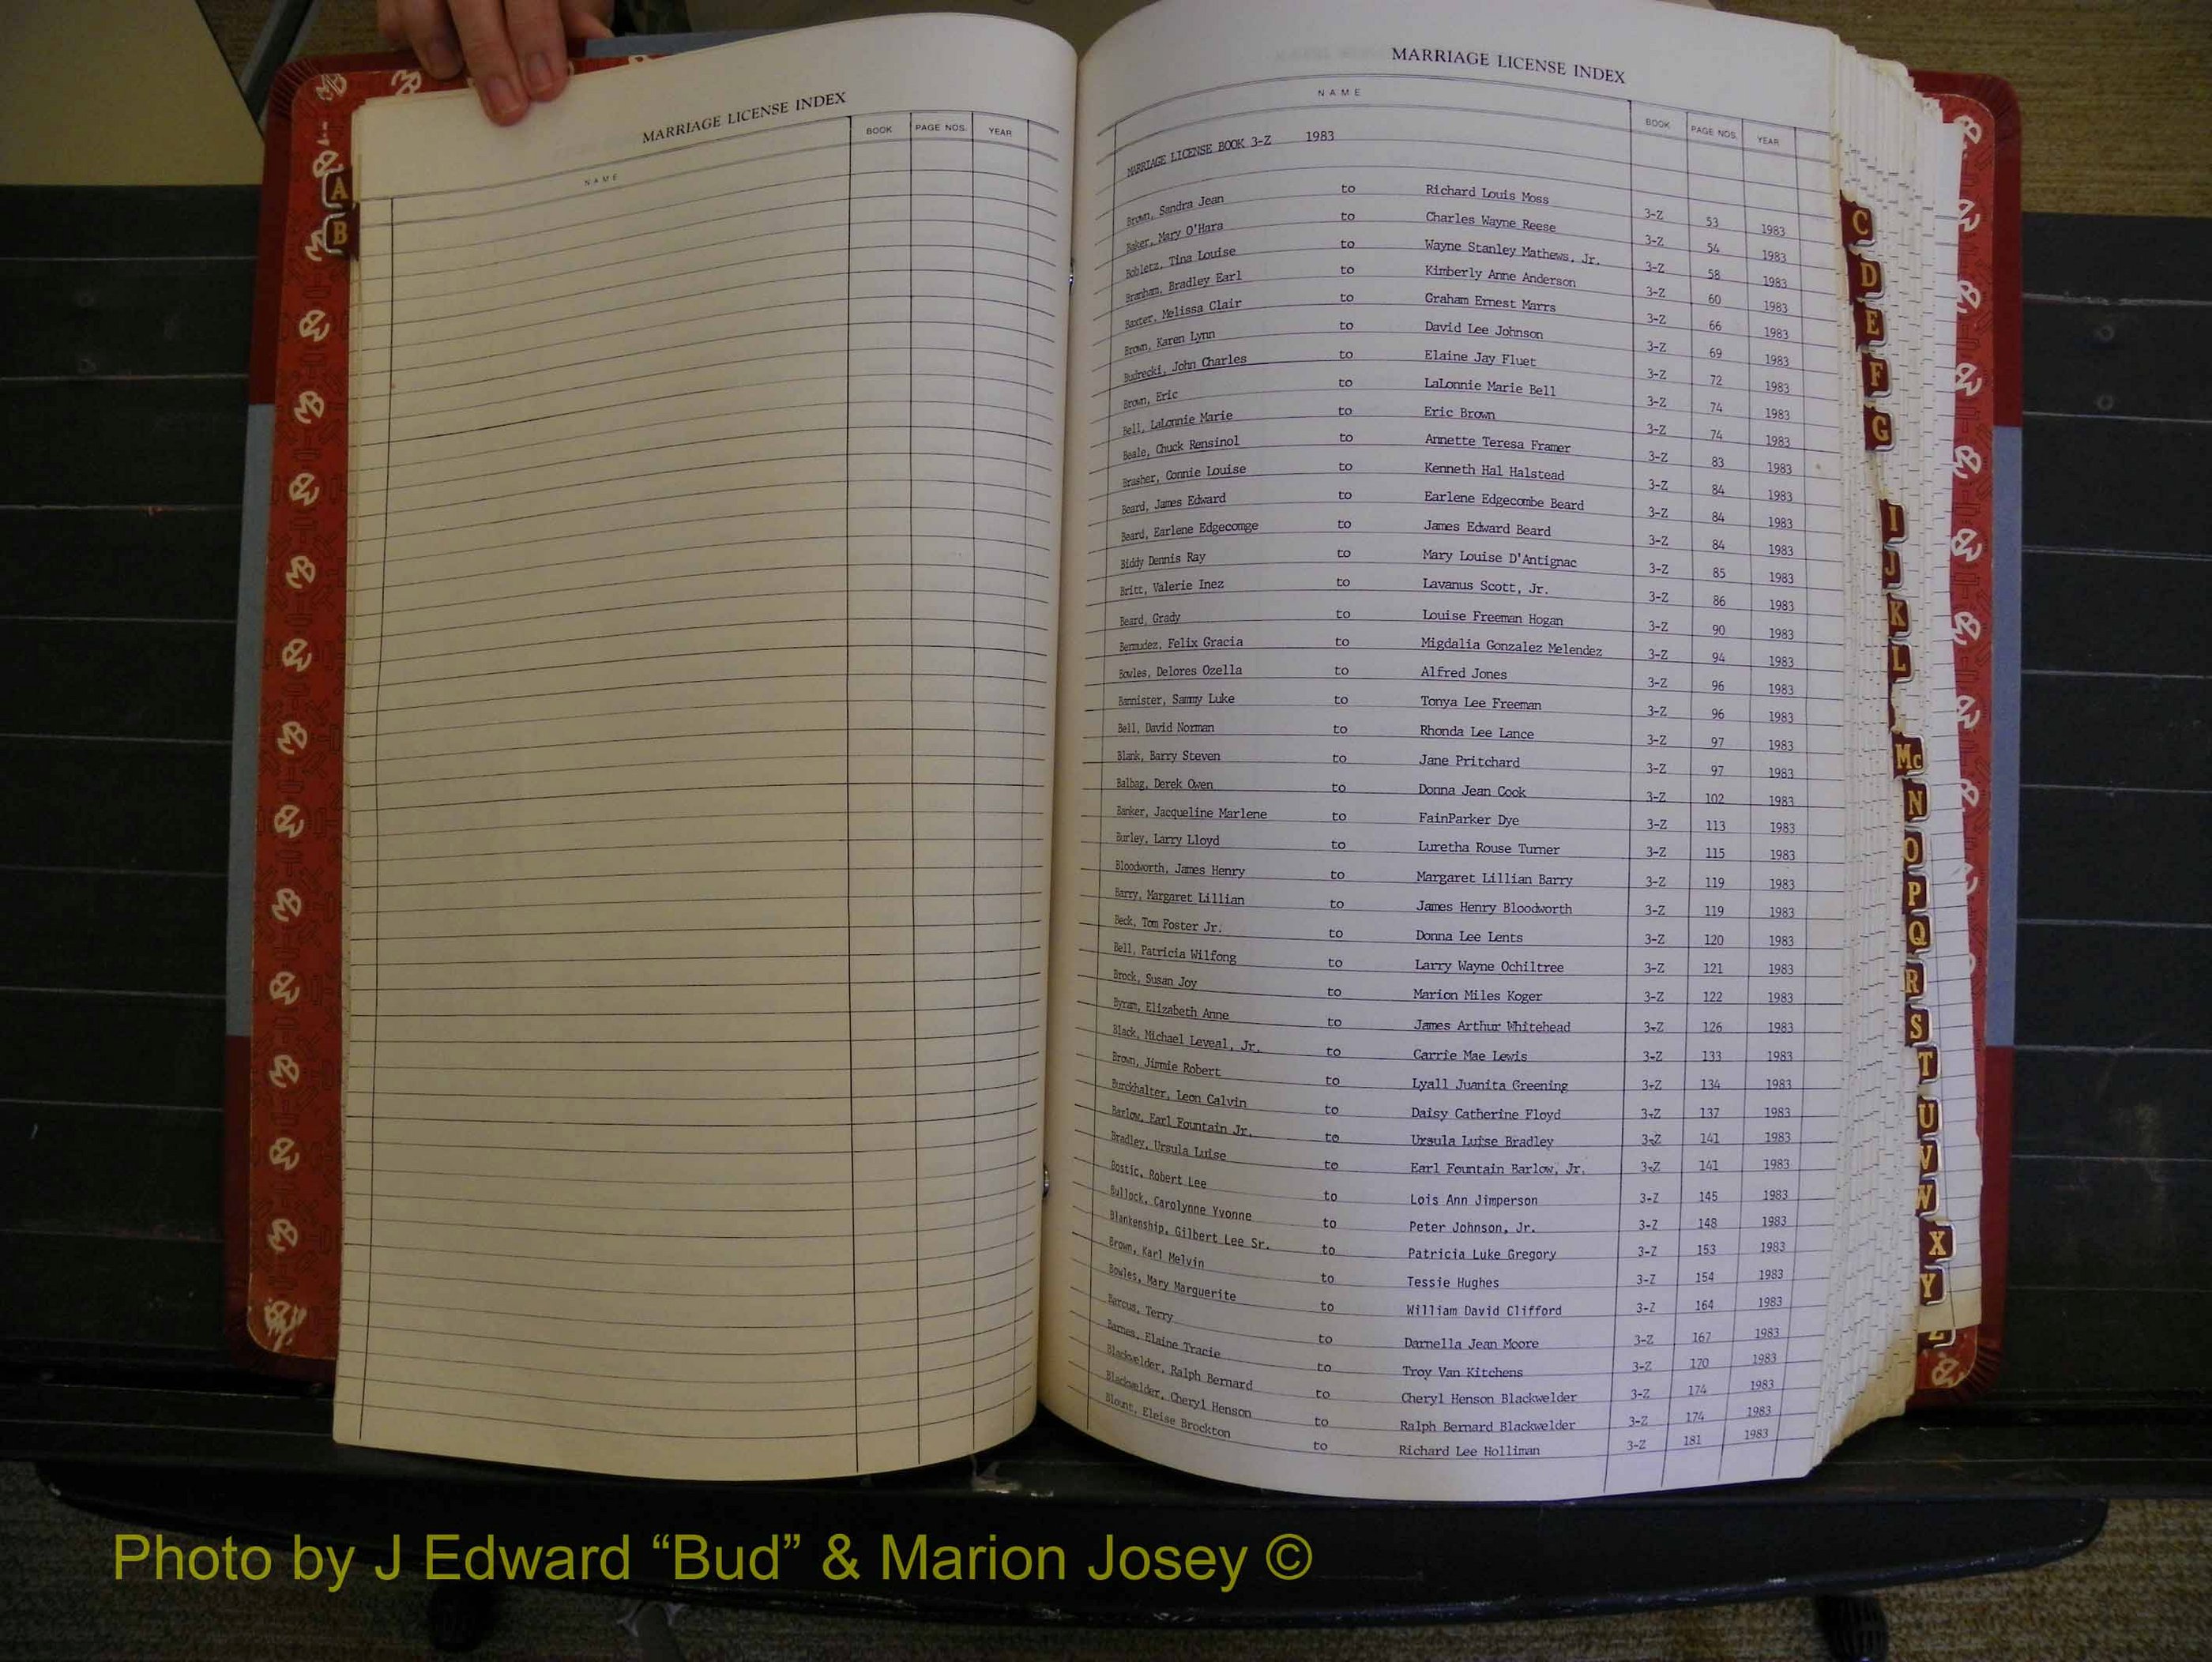 MARRIAGE LICENSE INDEX
NAME BOOK PAGE NOS. YEAR
A
B
MARRIAGE LICENSE INDEX
NAME BOOK PAGE NOS. YEAR
MARRIAGE LICENSE BOOK 3-Z 1983
Brown, Sandra Jean to Richard Louis Moss 3-Z 53 1983
Baker, Mary O'Hara to Charles Wayne Reese 3-Z 54 1983
Bobletz, Tina Louise to Wayne Stanley Mathews, Jr. 3-Z 58 1983
Branham, Bradley Earl to Kimberly Anne Anderson 3-Z 60 1983
Baxter, Melissa Clair to Graham Ernest Marrs 3-Z 66 1983
Brown, Karen Lynn to David Lee Johnson 3-Z 69 1983
Budrecki, John Charles to Elaine Jay Fluet 3-Z 72 1983
Brown, Eric to LaLonnie Marie Bell 3-Z 74 1983
Bell, LaLonnie Marie to Eric Brown 3-Z 74 1983
Beale, Chuck Rensinol to Annette Teresa Framer 3-Z 83 1983
Brasher, Connie Louise to Kenneth Hal Halstead 3-Z 84 1983
Beard, James Edward to Earlene Edgecombe Beard 3-Z 84 1983
Beard, Earlene Edgecomge to James Edward Beard 3-Z 84 1983
Biddy Dennis Ray to Mary Louise D'Antignac 3-Z 85 1983
Britt, Valerie Inez to Lavanus Scott, Jr. 3-Z 86 1983
Beard, Grady to Louise Freeman Hogan 3-Z 90 1983
Bermudez, Felix Gracia to Migdalia Gonzalez Melendez 3-Z 94 1983
Bowles, Delores Ozella to Alfred Jones 3-Z 96 1983
Bannister, Sammy Luke to Tonya Lee Freeman 3-Z 96 1983
Bell, David Norman to Rhonda Lee Lance 3-Z 97 1983
Blank, Barry Steven to Jane Pritchard 3-Z 97 1983
Balbag, Derek Owen to Donna Jean Cook 3-Z 102 1983
Banker, Jacqueline Marlene to FainParker Dye 3-Z 113 1983
Burley, Larry Lloyd to Luretha Rouse Turner 3-Z 115 1983
Bloodworth, James Henry to Margaret Lillian Barry 3-Z 119 1983
Barry, Margaret Lillian to James Henry Bloodworth 3-Z 119 1983
Beck, Tom Foster Jr. to Donna Lee Lents 3-Z 120 1983
Bell, Patricia Wilfong to Larry Wayne Ochiltree 3-Z 121 1983
Brock, Susan Joy to Marion Miles Koger 3-Z 122 1983
Byram, Elizabeth Anne to James Arthur Whitehead 3-Z 126 1983
Black, Michael Leveal, Jr. to Carrie Mae Lewis 3-Z 133 1983
Brown, Jimmie Robert to Lyall Juanita Greening 3-Z 134 1983
Burckhalter, Leon Calvin to Daisy Catherine Floyd 3-Z 137 1983
Barlow, Earl Fountain Jr. to Ursula Luise Bradley 3-Z 141 1983
Bradley, Ursula Luise to Earl Fountain Barlow, Jr. 3-Z 141 1983
Bostic, Robert Lee to Lois Ann Jimperson 3-Z 145 1983
Bullock, Carolynne Yvonne to Peter Johnson, Jr. 3-Z 148 1983
Blankenship, Gilbert Lee Sr. to Patricia Luke Gregory 3-Z 153 1983
Brown, Karl Melvin to Tessie Hughes 3-Z 154 1983
Bowles, Mary Marguerite to William David Clifford 3-Z 164 1983
Barcus, Terry to Darnella Jean Moore 3-Z 167 1983
Barnes, Elaine Tracie to Troy Van Kitchens 3-Z 170 1983
Blackwelder, Ralph Bernard to Cheryl Henson Blackwelder 3-Z 174 1983
Blackwelder, Cheryl Henson to Ralph Bernard Blackwelder 3-Z 174 1983
Blount, Eleise Brockton to Richard Lee Holliman 3-Z 181 1983
C
D
E
F
G
I
J
K
L
Mc
N
O
P
Q
R
S
T
U
V
W
X
Y
Z
Photo by J Edward “Bud” & Marion Josey ©